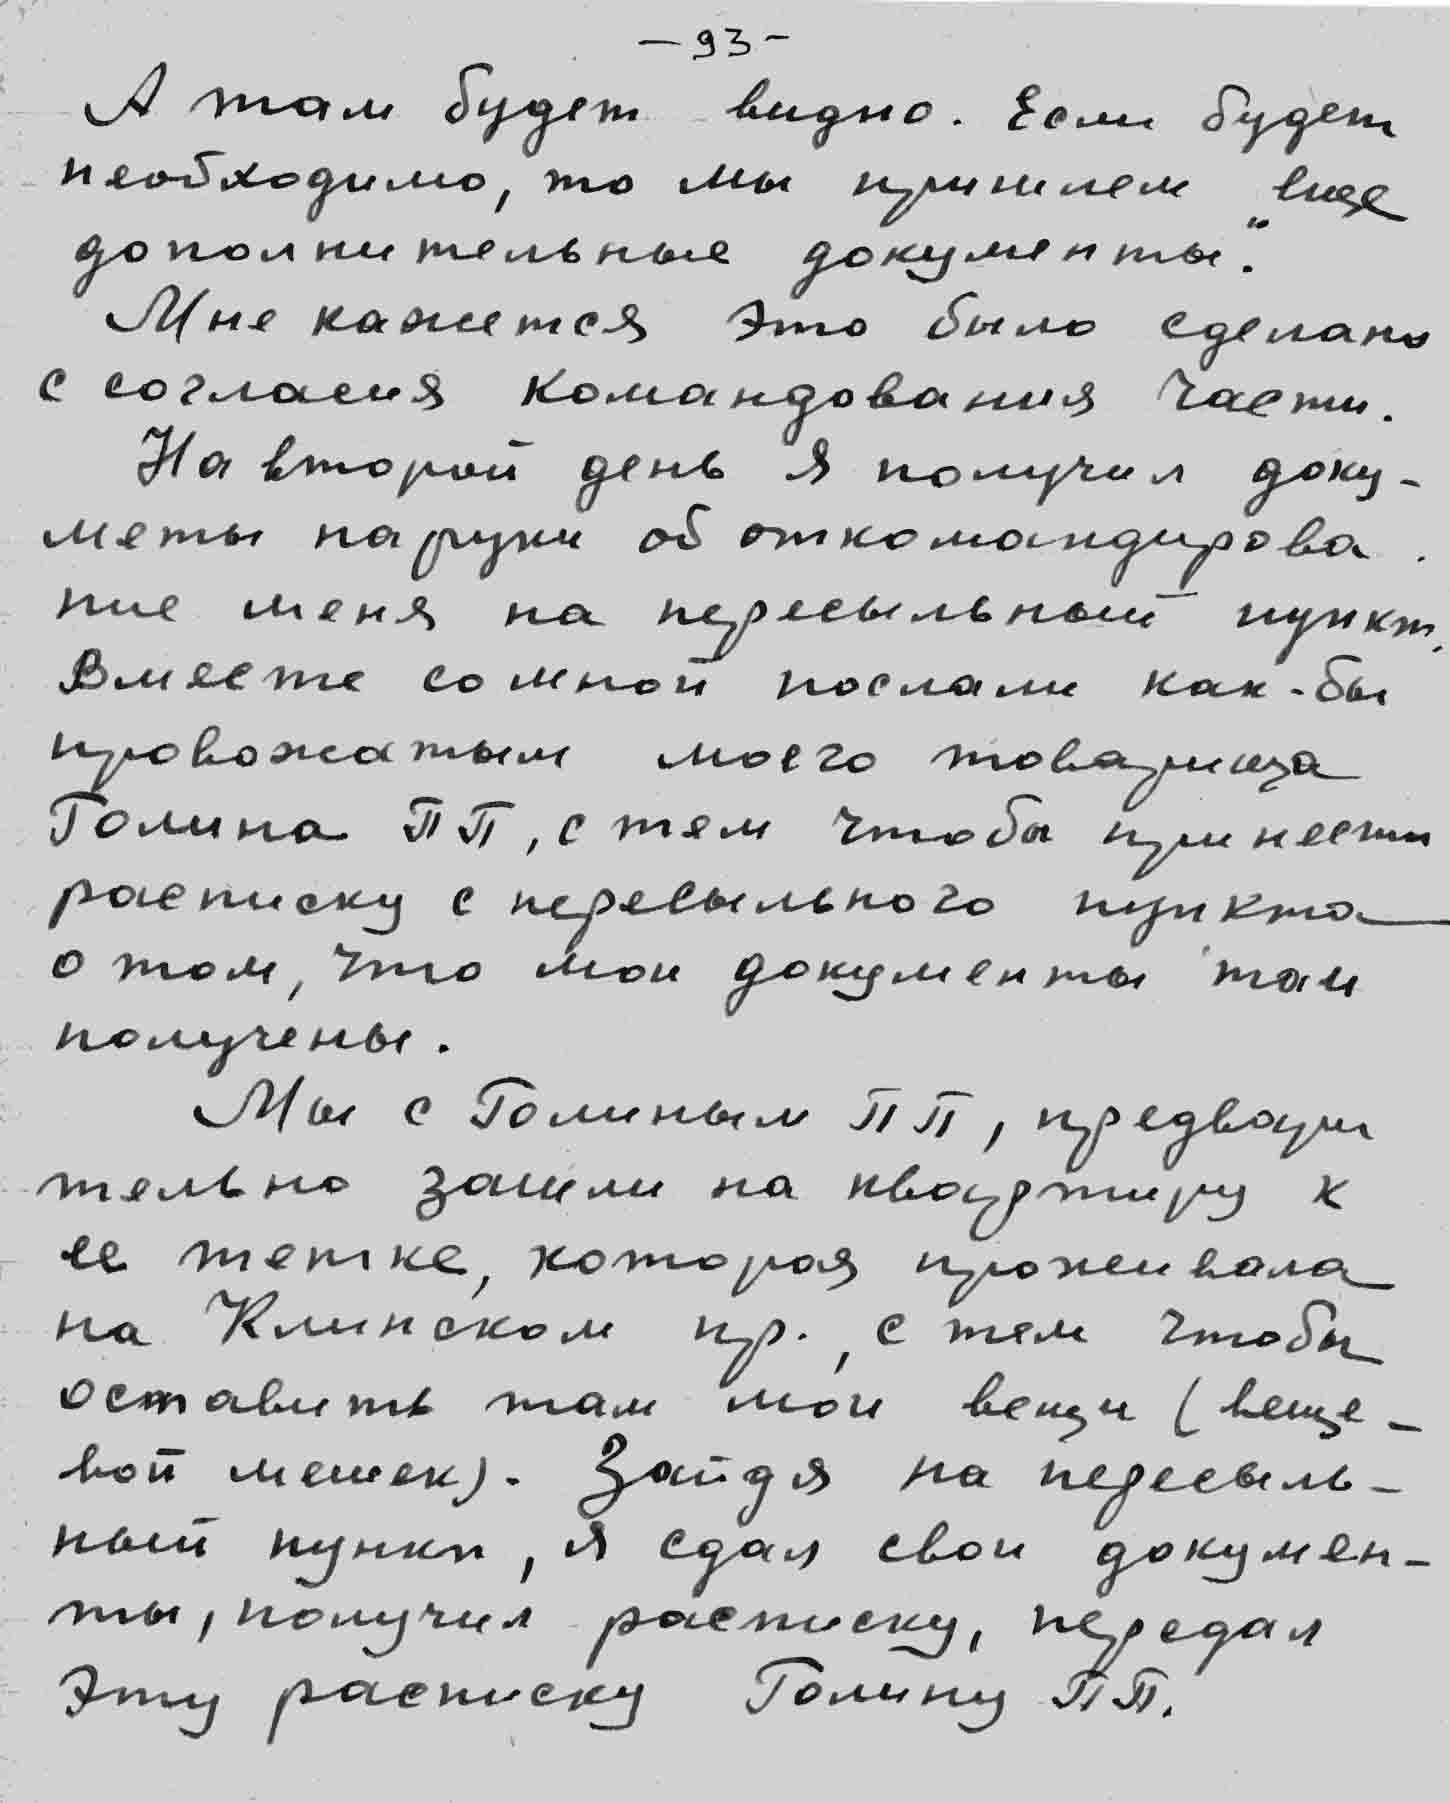 - 93 -
А там будет видно. Если будет
необходимо, то мы пришлем еще
дополнительные документы".
Мне кажется это было сделано
с согласия командования части.
На второй день я получил доку-
меты на руки об откомандирова
ние меня на пересыльный пункт.
Вместе со мной послали как-бы
провожатым моего товарища
Голина ПП, с тем чтобы принести
расписку с пересыльного пункта
о том, что мои документы там
получены.
Мы с Голиным ПП, предвари
тельно зашли на квартиру к
ее тетке, которая проживала
на Клинском пр., с тем чтобы
оставить там мои вещи (веще-
вой мешек). Зайдя на пересыль-
ный пункт, я сдал свои докумен-
ты, получил расписку, передал
эту расписку Голину ПП.